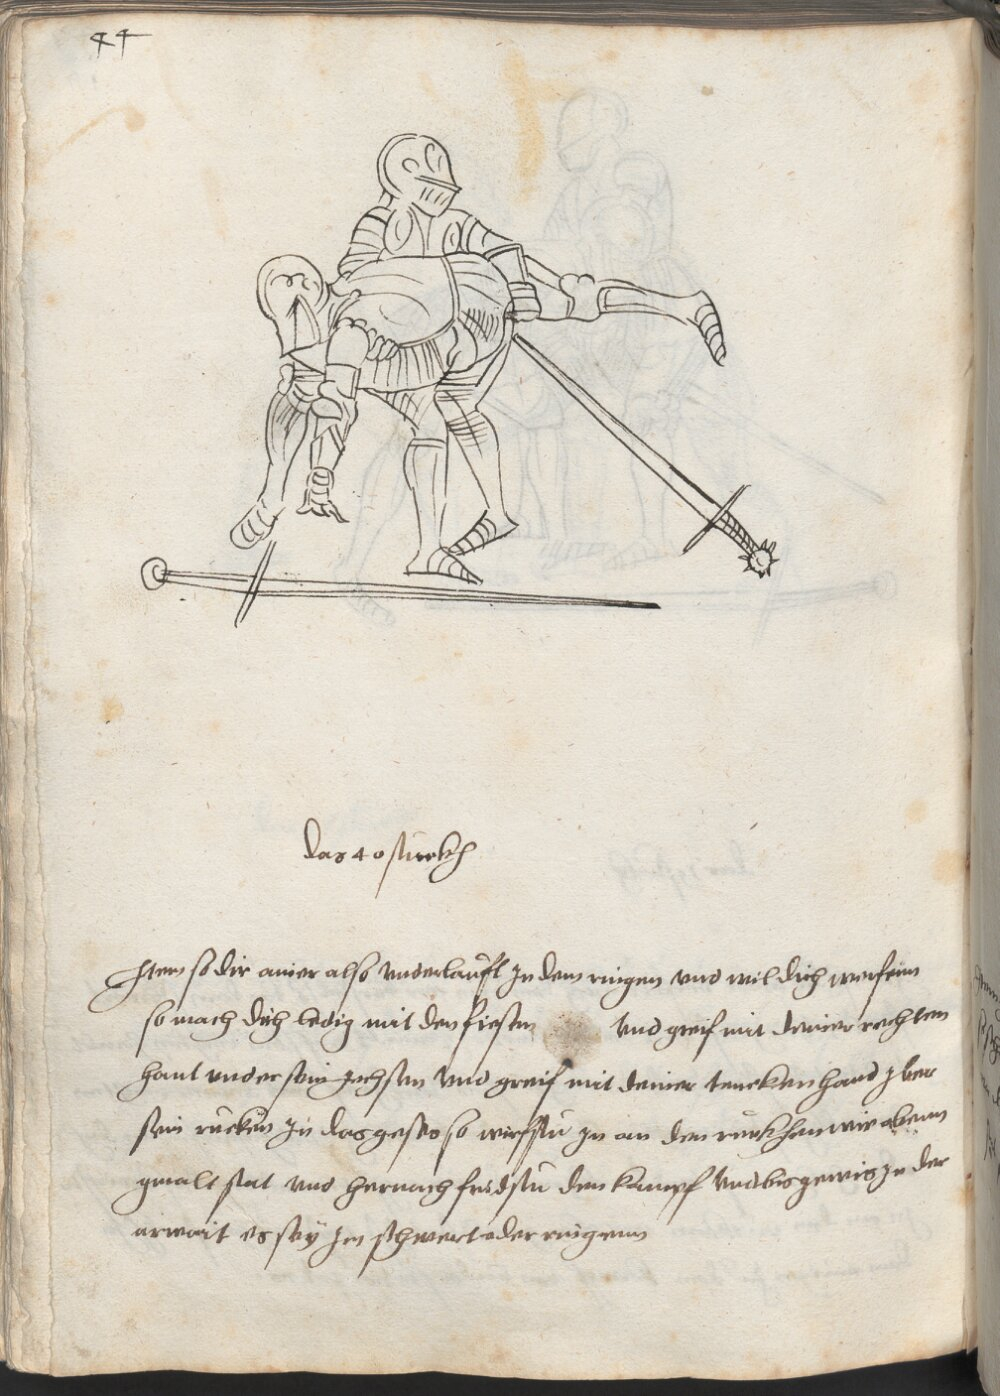 44
das 40 stuckh
Item so dir ainer also underlaufft In dem ringen und wil dich werfenn
so mach dich ledig mit den fiessen und greif mit deiner rechten
hant under sein Iechsen und greif mit deiner tencken hand yber
sein rucken In das geses so wirfstu In an den ruckhen wie oben
gmalt stat und hernach findstu den kampf und bis gewis In der
arwait es sey Im schwert oder ringenn